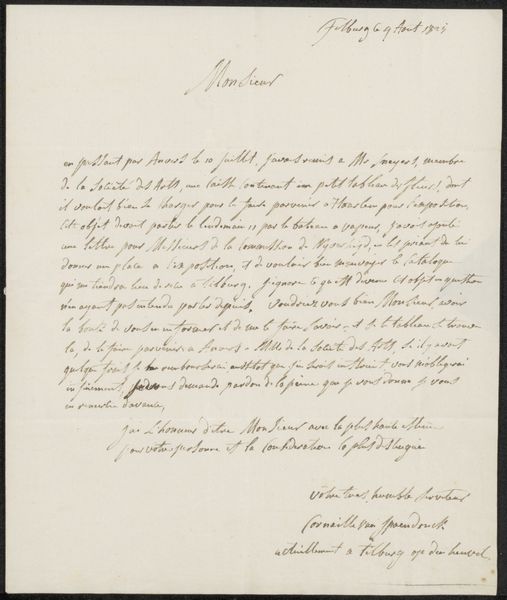 Tilburg le 9 Aout 1825
Monsieur
en passant par Anvers le 10 juillet, j'avais remis a Mr Snyers, membre
de la Societé des Arts, une caisse contenant un petit tableau de fleurs, dont
il voulait bien se charger pour le faire parvenir a Haarlem pour l'exposition,
cet objet devant partir le lendemain 11 par le bateau a vapeur, j'avois ajouté
une lettre pour Messieurs de la Commission de les priant de lui
donner une place a l'expositions, et de vouloir bien m'envoyer le Catalogue
qui me tiendra lieu de a Tilburg, j'ignore ce qu'est devenu cet objet
n'en ayant pas entendu parler depuis, voudriez vous bien Monsieur avoir
la bonté de vous en informer et de me le faire savoir, et si le tableau se trouve
la, de le faire parvenir a Anvers a MM de la Societé des Arts, si il y avait
quelque frais je rembourserai aussitot que j'en serai instruit vous m'obligerai
infiniment, je vous demande pardon de la peine que je vous donne et vous
en remercie d'avance,
j'ai l'honneur d'etre Monsieur avec la plus haute estime
pour votre personne et la Consideration la plus distinguée
vôtre tres humble serviteur
Corneille van Spaendonck
actuellement a Tilburg op den heuvel